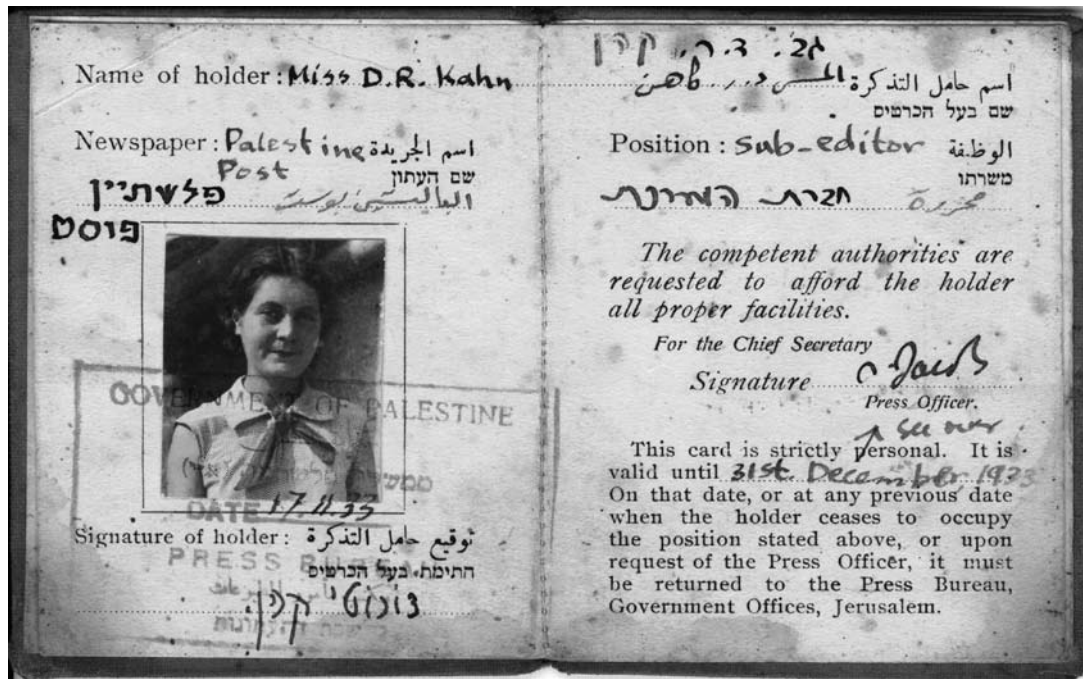 Name of holder: Miss D.R. Kahn
Newspaper: Palestine اسم الجريدة
Post שם העתון
פלשתיין
פוסט
GOVERNMENT OF PALESTINE
DATE 17.11.33
Signature of holder: توقيع حامل التذكرة
PRESS
חתימת בעל הכרטיס
קהן
גב. ד.ר. קהן
اسم حامل التذكرة
שם בעל הכרטיס
Position: Sub-editor الوظيفة
משרתו
חברת המערכת محررة
The competent authorities are
requested to afford the holder
all proper facilities.
For the Chief Secretary
Signature
Press Officer.
see over
This card is strictly personal. It is
valid until 31st. December, 1933
On that date, or at any previous date
when the holder ceases to occupy
the position stated above, or upon
request of the Press Officer, it must
be returned to the Press Bureau,
Government Offices, Jerusalem.